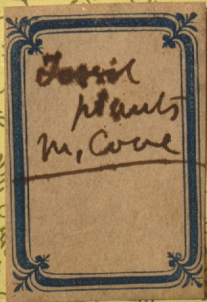 Fossil
plants
M, Cove